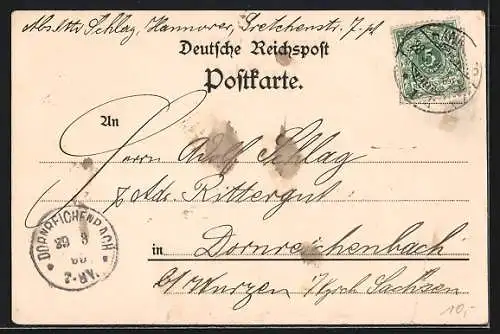 Abs: Schlag, Hannover, Gretchenstr. 7. pt
Deutsche Reichspost
Postkarte.
5
An
Herrn Adolf Schlag
z. Adr. Rittergut
in Dornreichenbach
b/ Wurzen i/Kgrch Sachsen
DORNREICHENBACH
29 3
10,-